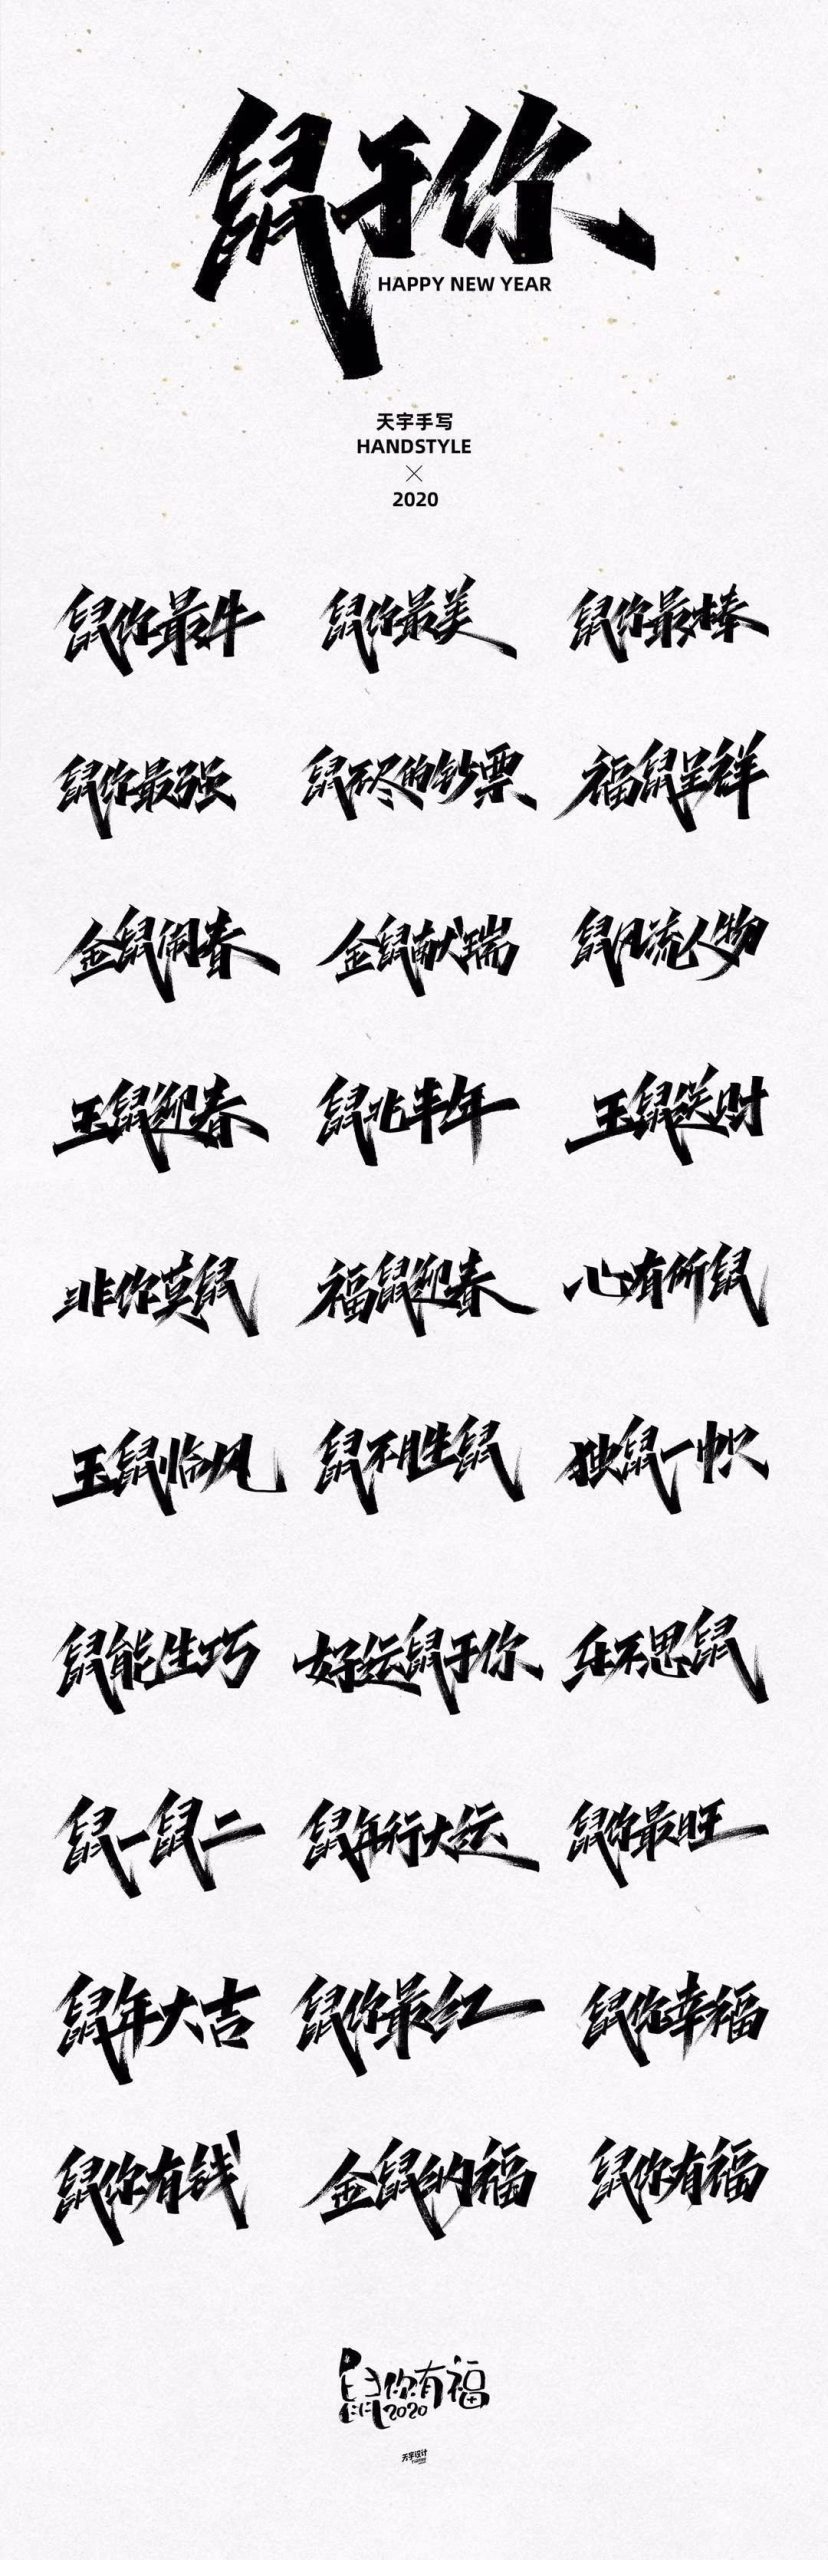 鼠于你
HAPPY NEW YEAR
天宇手写
HANDSTYLE
2020
鼠你最牛 鼠你最美 鼠你最棒
鼠你最强 鼠不尽的钞票 福鼠呈祥
金鼠闹春 金鼠献瑞 鼠风流人物
玉鼠迎春 鼠兆丰年 玉鼠送财
非你莫鼠 福鼠迎春 心有所鼠
玉鼠临风 鼠不胜鼠 独鼠一帜
鼠能生巧 好运鼠于你 乐不思鼠
鼠一鼠二 鼠年行大运 鼠你最旺
鼠年大吉 鼠你最红 鼠你幸福
鼠你有钱 金鼠纳福 鼠你有福
鼠你有福
2020
天宇设计